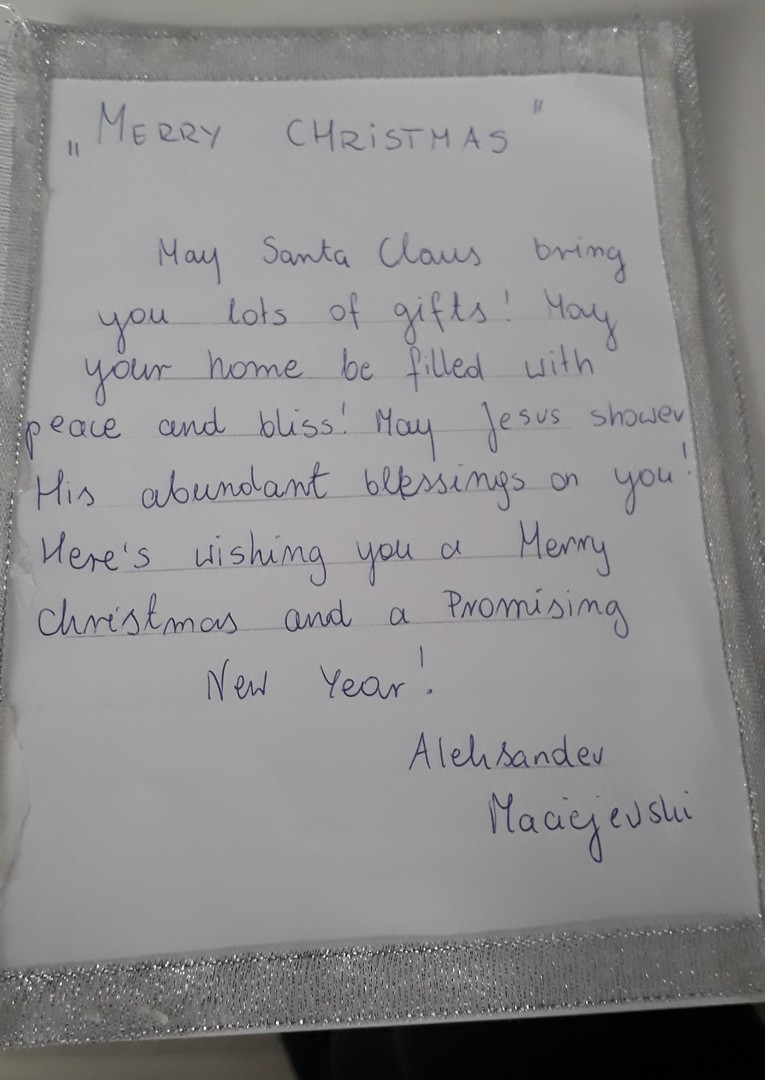 „MERRY CHRiSTMAS"
May Santa Claus bring
you lots of gifts! May
your home be filled with
peace and bliss! May Jesus shower
His abundant blessings on you!
Here's wishing you a Merry
Christmas and a Promising
New Year!
Aleksander
Maciejewski